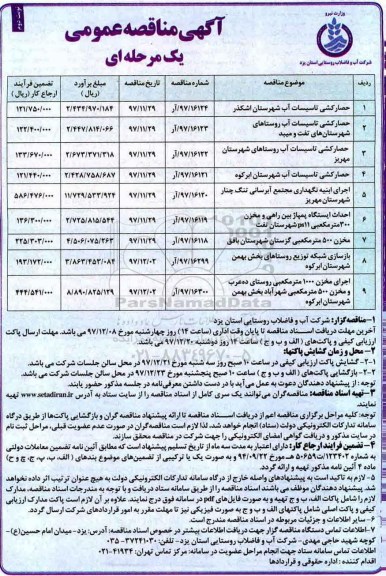 نوبت دوم
وزارت نیرو
شرکت آب و فاضلاب روستایی استان یزد
آگهی مناقصه عمومی
یک مرحله ای
ردیف موضوع مناقصه شماره مناقصه تاریخ مناقصه مبلغ برآورد (ریال) تضمین فرآیند ارجاع کار (ریال)
۱ حصارکشی تاسیسات آب شهرستان اشکذر ۹۷/۱۶۱۲۴/آر ۹۷/۱۱/۲۹ ۲/۴۳۴/۹۷۰/۱۸۴ ۱۲۱/۷۵۰/۰۰۰
۲ حصارکشی تاسیسات آب روستاهای شهرستان‌های تفت و میبد ۹۷/۱۶۱۲۳/آر ۹۷/۱۱/۲۹ ۲/۴۴۷/۸۱۴/۰۶۶ ۱۲۲/۴۰۰/۰۰۰
۳ حصارکشی تاسیسات آب روستاهای شهرستان مهریز ۹۷/۱۶۱۲۲/آر ۹۷/۱۱/۲۹ ۲/۶۷۳/۳۷۱/۳۱۸ ۱۳۳/۶۷۰/۰۰۰
۴ حصارکشی تاسیسات آب شهرستان ابرکوه ۹۷/۱۶۱۲۱/آر ۹۷/۱۱/۲۹ ۲/۴۲۸/۷۵۸/۶۸۷ ۱۲۱/۴۴۰/۰۰۰
۵ اجرای ابنیه نگهداری مجتمع آبرسانی تنگ چنار شهرستان مهریز ۹۷/۱۶۱۲۰/آر ۹۷/۱۱/۲۹ ۱۱/۷۲۹/۵۳۳/۹۲۴ ۵۸۶/۴۷۶/۰۰۰
۶ احداث ایستگاه پمپاژ بین راهی و مخزن ۳۰۰مترمکعبی ps۱۱ شهرستان تفت ۹۷/۱۶۱۱۹/آر ۹۷/۱۱/۲۹ ۲/۷۲۵/۸۱۵/۵۴۴ ۱۳۶/۳۰۰/۰۰۰
۷ مخزن ۵۰۰ مترمکعبی گزستان شهرستان بافق ۹۷/۱۶۱۱۸/آر ۹۷/۱۱/۲۹ ۴/۵۰۶/۰۷۵/۲۶۳ ۲۲۵/۳۰۳/۰۰۰
۸ بازسازی شبکه توزیع روستاهای بخش بهمن شهرستان ابرکوه ۹۷/۱۶۲۹۹/آر ۹۷/۱۲/۰۲ ۳/۸۶۳/۴۵۳/۰۸۴ ۱۹۳/۱۷۲/۰۰۰
۹ اجرای مخزن ۱۰۰۰ مترمکعبی روستای ده‌عرب و مخزن ۵۰۰ مترمکعبی شهرآباد بخش بهمن شهرستان ابرکوه ۹۷/۱۶۳۰۰/آر ۹۷/۱۲/۰۲ ۸/۸۹۰/۸۲۵/۱۲۹ ۴۴۴/۵۴۱/۰۰۰
۱-مناقصه‌گزار: شرکت آب و فاضلاب روستایی استان یزد
آخرین مهلت دریافت اسناد مناقصه تا پایان وقت اداری (ساعت ۱۴) روز چهارشنبه مورخ ۹۷/۱۲/۰۸ می باشد. مهلت ارسال پاکت ارزیابی کیفی و پاکت‌های (الف و ب و ج) ساعت ۱۴ روز دوشنبه ۹۷/۱۲/۲۰ می باشد.
۲- محل و زمان گشایش پاکتها:
۲-۱- گشایش پاکت ارزیابی کیفی در ساعت ۱۰ صبح روز سه شنبه مورخ ۹۷/۱۲/۲۱ در محل سالن جلسات شرکت می باشد.
۲-۲- بازگشایی پاکت‌های (الف و ب و ج) ساعت ۱۰ صبح پنجشنبه مورخ ۹۷/۱۲/۲۳ در محل سالن جلسات شرکت می باشد.
توجه: از پیشنهاد دهندگان دعوت به عمل می آید با در دست داشتن معرفی‌نامه در جلسه مذکور حضور یابند.
۳-تهیه اسناد مناقصه: مناقصه‌گران می توانند یک سری کامل از اسناد مناقصه را از سایت ستاد به آدرس www.setadiran.ir تهیه نمایند.
توجه: کلیه مراحل برگزاری مناقصه اعم از دریافت اسناد مناقصه تا ارائه پیشنهاد مناقصه گران و بازگشایی پاکت‌ها از طریق درگاه سامانه تدارکات الکترونیکی دولت (ستاد) انجام خواهد شد. لذا لازم است مناقصه‌گران در صورت عدم عضویت قبلی، مراحل ثبت نام در سایت مذکور و دریافت گواهی امضای الکترونیکی را جهت شرکت در مناقصه محقق سازند.
۴- تضمین فرآیند ارجاع کار: دارای اعتبار به مدت سه ماه از تاریخ تسلیم پیشنهاد است که مطابق آئین نامه تضمین معاملات دولتی به شماره ۱۲۳۴۰۲/ت۵۰۶۵۹هـ مورخ ۹۴/۰۹/۲۲ و به صورت یک یا ترکیبی از تضمین‌های موضوع بندهای (الف، ب، پ، ج، چ و ح) ماده ۴ آئین نامه مذکور تهیه و ارائه گردد.
۵- لازم به تاکید است به پیشنهادهای واصله خارج از درگاه سامانه تدارکات الکترونیکی دولت به هیچ عنوان ترتیب اثر داده نخواهد شد. پیشنهاد دهندگان موظف می باشند اسناد مناقصه را از طریق سامانه ستاد دریافت و با توجه به مندرجات اسناد مناقصه، مدارک لازم را شامل پاکات الف، ب و ج تهیه و به صورت فایل‌های pdf در سامانه فوق درج نمایند. علاوه بر آن لازم است پاکت مدارک ارزیابی کیفی و پاکت اصلی شامل پاکتهای الف و ب و ج به صورت فیزیکی نیز تا مهلت مقرر به امور قراردادهای شرکت ارسال گردد.
۶- سایر اطلاعات و جزئیات مربوطه در اسناد مناقصه مندرج است.
۷-اطلاعات تماس دستگاه مناقصه گزار جهت دریافت اطلاعات بیشتر در خصوص اسناد مناقصه: آدرس: یزد- میدان امام حسین(ع)- کوچه شهید حاجی مهدی- شرکت آب و فاضلاب روستایی استان یزد- تلفن: ۳۷۲۴۱۰۳۰-۰۳۵
اطلاعات تماس سامانه ستاد جهت انجام مراحل عضویت در سامانه: مرکز تماس تهران: ۴۱۹۳۴-۰۲۱
اقدام کننده: اداره حقوقی و قراردادها
ParsNamadData